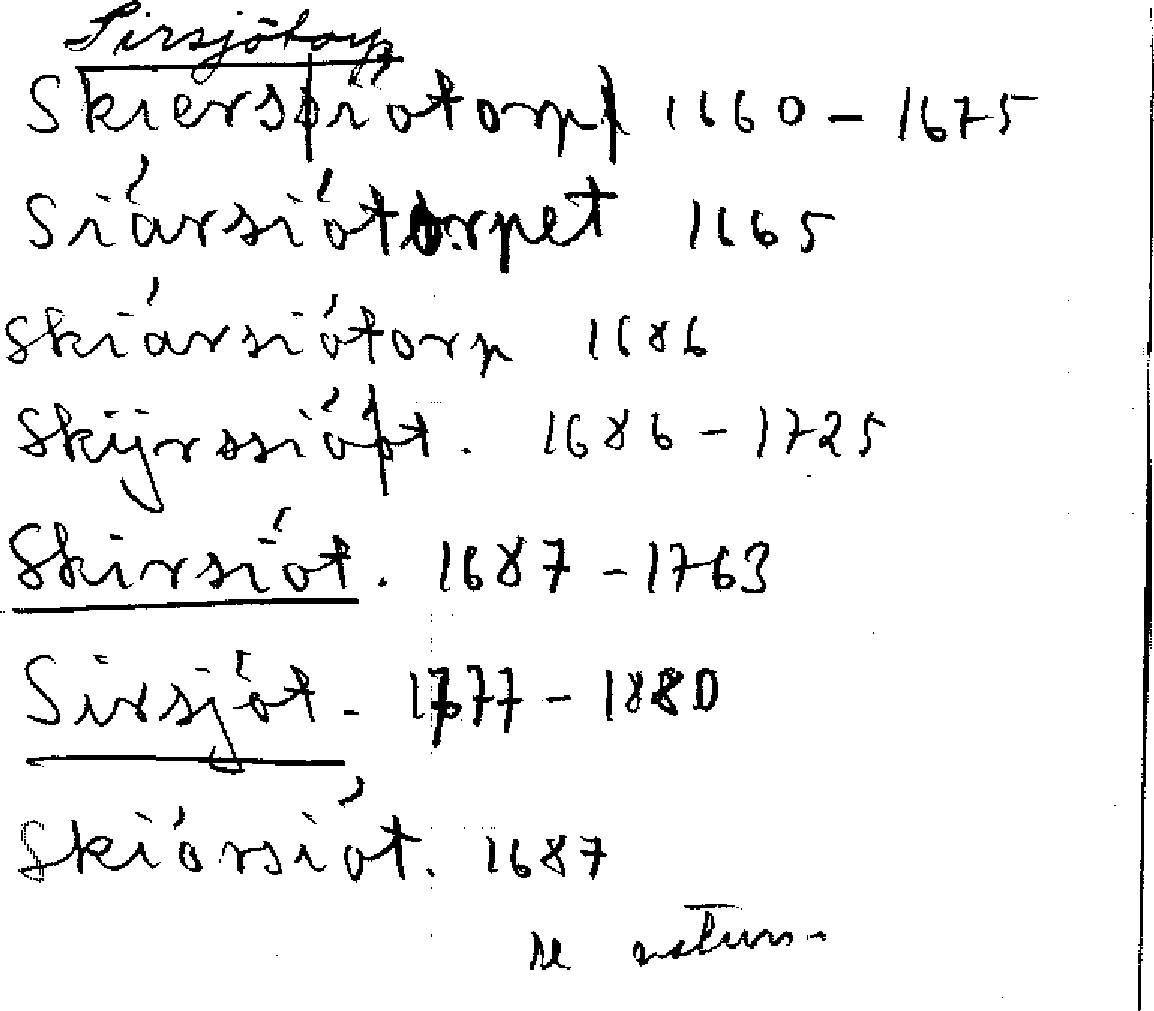 Sirsjötorp
Skiersiötorp 1660 – 1675
Siärsiötorpet 1665
Skiärsiötorp 1686
Skijrssiöt. 1686 – 1725
Skirsiöt. 1687 – 1763
Sirsjöt. 1677 – 1880
Skiörsiöt. 1687
se